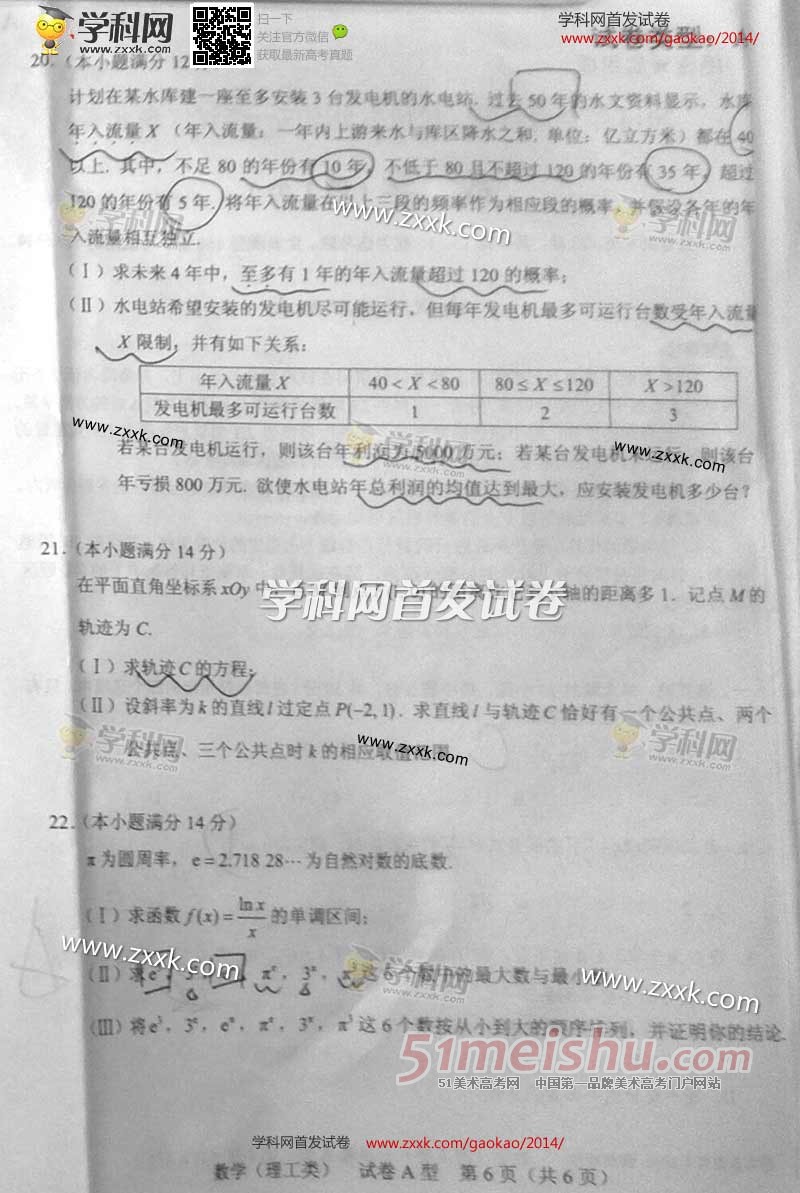 学科网
www.zxxk.com
扫一下
关注官方微信
获取最新高考真题
学科网首发试卷
www.zxxk.com/gaokao/2014/
20.(本小题满分12
计划在某水库建一座至多安装3台发电机的水电站. 过去50年的水文资料显示, 水库
年入流量X(年入流量: 一年内上游来水与库区降水之和. 单位: 亿立方米)都在40
以上. 其中, 不足80的年份有10年, 不低于80且不超过120的年份有35年, 超过
120的年份有5年. 将年入流量在以上三段的频率作为相应段的概率, 并假设各年的年
入流量相互独立.
学科网
www.zxxk.com
www.zxxk.com
学科网
www.zxxk.com
(Ⅰ)求未来4年中, 至多有1年的年入流量超过120的概率;
(Ⅱ)水电站希望安装的发电机尽可能运行, 但每年发电机最多可运行台数受年入流量
X限制, 并有如下关系:
年入流量X 40<X<80 80≤X≤120 X>120
发电机最多可运行台数 1 2 3
www.zxxk.com
学科网
www.zxxk.com
www.zxxk.com
若某台发电机运行, 则该台年利润为5000万元; 若某台发电机 则该台
年亏损800万元. 欲使水电站年总利润的均值达到最大, 应安装发电机多少台?
21.(本小题满分14分)
在平面直角坐标系xOy中 轴的距离多1. 记点M的
学科网首发试卷
轨迹为C.
(Ⅰ)求轨迹C的方程;
(Ⅱ)设斜率为k的直线l过定点P(-2,1). 求直线l与轨迹C恰好有一个公共点、两个
公共点、三个公共点时k的相应取值范围.
学科网
www.zxxk.com
www.zxxk.com
学科网
www.zxxk.com
22.(本小题满分14分)
π为圆周率, e=2.718 28…为自然对数的底数.
(Ⅰ)求函数f(x)=lnx/x的单调区间;
www.zxxk.com
学科网
www.zxxk.com
www.zxxk.com
(Ⅱ)求e³, π^e, 3^π, π³这6个数中的最大数与最小
(Ⅲ)将e³, 3^e, e^π, π^e, 3^π, π³这6个数按从小到大的顺序排列, 并证明你的结论.
51meishu.com
51美术高考网 中国第一品牌美术高考门户网站
学科网首发试卷
www.zxxk.com/gaokao/2014/
数学(理工类) 试卷A型 第6页(共6页)